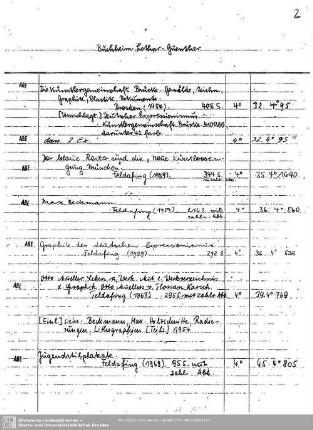 2
Buchheim Lothar-Günther
ABE Die Künstlergemeinschaft Brücke. Gemälde, Zeichn.
Graphik, Plastik, Dokumente.
(1956). 408 S. 4° 32. 4° 95
[Umschlagt.] Deutscher Expressionismus
Künstlergemeinschaft Brücke.
darunter 42 farb.
ABE dass. 2. Ex. 4° 32. 4° 95
ABE Der blaue Reiter und die "neue Künstlerverei-
gung München".
Feldafing (1959). 344 S. 4° 35. 4° 1690
ABE Max Beckmann.
Feldafing (1959). 216 S. mit 4° 36. 4° 860
zahlr. Abb.
ABE Graphik des deutschen Expressionismus
Feldafing (1959). 292 S. 4° 36. 4° 636
ABE Otto Mueller. Leben u. Werk. Mit e. Werkverzeichnis
d. Graphik Otto Muellers v. Florian Karsch.
Feldafing (1963). 295 S. mit zahlr. Abb. 4° 39. 4° 769
[Einl.] siehe: Beckmann, Max: Holzschnitte, Radie-
rungen, Lithographien [Teils.] 1954.
ABE Jugendstilplakate.
Feldafing (1969). 95 S. mit 4° 45. 4° 805
zahlr. Abb.